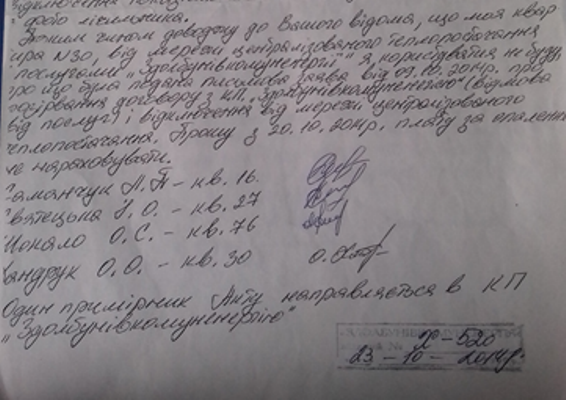 і фото лічильника.
Даним чином доводжу до Вашого відома, що моя квар
ира №30, від мережі централізованого теплопостачання
послугами „Здолбунівкомуненергії" я користуватися не буду,
ро що була подана письмова заява від 09.10.2014р. про
розірвання договору з КП „Здолбунівкомуненергією" (відмова
від послуг) і відключення від мережі централізованого
теплопостачання. Прошу з 20.10.2014р. плату за опаленн
не нараховувати.
П. П – кв. 16
О. – кв. 27
О. С. – кв. 76
андрук О. О. – кв. 30
Один примірник Акту направляється в КП
„Здолбунівкомуненергію"
520
23 – 10 – 2014р.